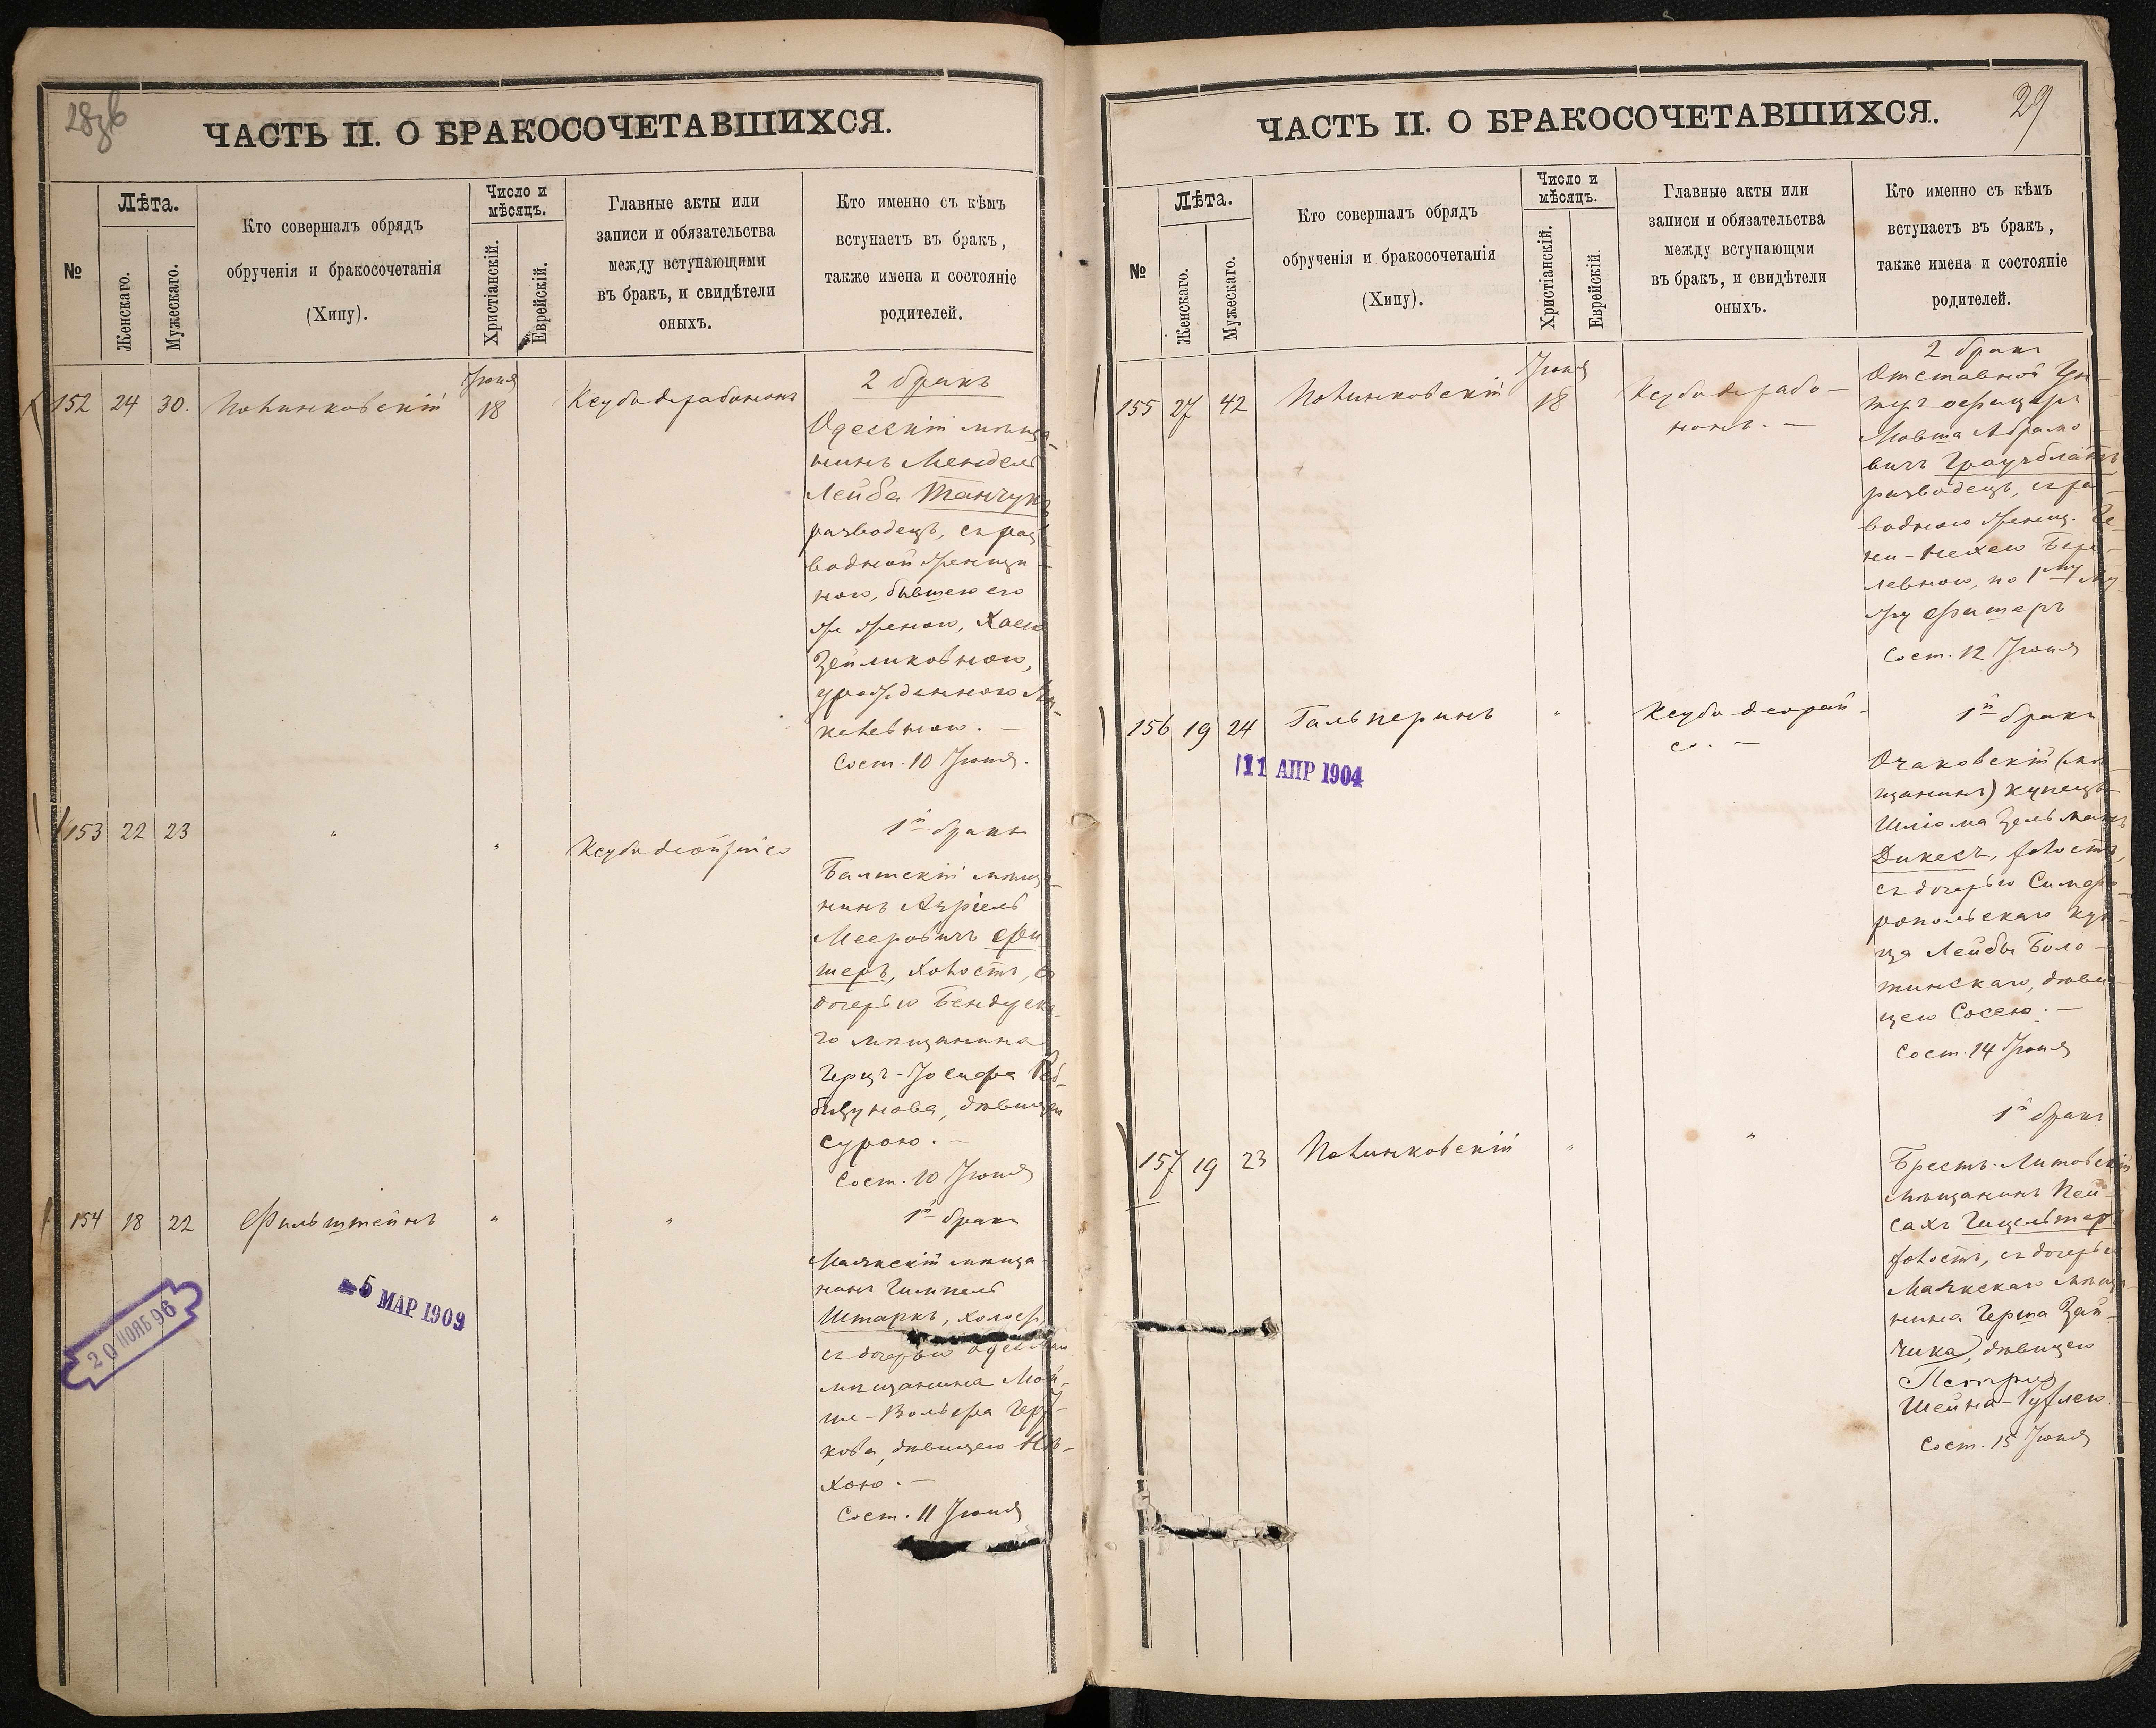 28зв
ЧАСТЬ II. О БРАКОСОЧЕТАВШИХСЯ.
№
Лѣта.
Женскаго.
Мужескаго.
Кто совершалъ обрядъ
обрученія и бракосочетанія
(Хипу).
Число и
мѣсяцъ.
Христіанскій.
Еврейскій.
Главные акты или
записи и обязательства
между вступающими
въ бракъ, и свидѣтели
оныхъ.
Кто именно съ кѣмъ
вступаетъ въ бракъ,
также имена и состояніе
родителей.
152 24 30.
Іюня
18
2 бракъ
Одесскій мѣща-
нинъ Мендель
Лейба Танчукъ
разводецъ, съ раз-
водной женщи-
ною, бывшею его
женою, Хаею
Зейликовною,
урожденною
Сост. 10 Іюня.
153 22 23
"
"
1й бракъ
Балтскій мѣща-
нинъ Азріель
Мееровичъ Фи-
шеръ, холостъ, съ
дочерью Бендерска-
го мѣщанина
Герцъ-Іосифа
дѣвицею
Сурою. —
Сост. 10 Іюня
154 18 22
Фильштейнъ
"
"
1й бракъ
Маякскій мѣща-
нинъ Гимпель
Штаркъ, холост,
съ дочерью
мѣщанина Мой-
ше-Вольфа
кова, дѣвицею Не-
хою. —
Сост. 11 Іюня
20 НОЯБ 96
5 МАР 1909
29
ЧАСТЬ II. О БРАКОСОЧЕТАВШИХСЯ.
№
Лѣта.
Женскаго.
Мужескаго.
Кто совершалъ обрядъ
обрученія и бракосочетанія
(Хипу).
Число и
мѣсяцъ.
Христіанскій.
Еврейскій.
Главные акты или
записи и обязательства
между вступающми
въ бракъ, и свидѣтели
оныхъ.
Кто именно съ кѣмъ
вступаетъ въ бракъ,
также имена и состояніе
родителей.
155 27 42
Іюня
18
2 бракъ
Отставной Ун-
теръ офицеръ
Мовша Абрамо-
вичъ Грауэблатъ
разводецъ, съ раз-
водною женщ.
Бер-
левною, по 1му му-
жу Фишеръ
Сост. 12 Іюня
156 19 24
Гальперинъ
"
11 АПР 1904
1й бракъ
Очаковскій (мѣ-
щанинъ) купецъ
Шлiома Зельманъ
Дикесъ, холостъ,
съ дочерью Симфе-
ропольскаго куп-
ца Лейбы Боло-
тинскаго, дѣви-
цею Сосею. —
Сост. 14 Іюня
157 19 23
"
"
1й бракъ
Брестъ-Литовскій
мѣщанинъ Пей-
сахъ
холостъ, съ дочерью
Маякскаго мѣща-
нина Герша Зай-
чика, дѣвицею
Шейна-
Сост. 15 Іюня